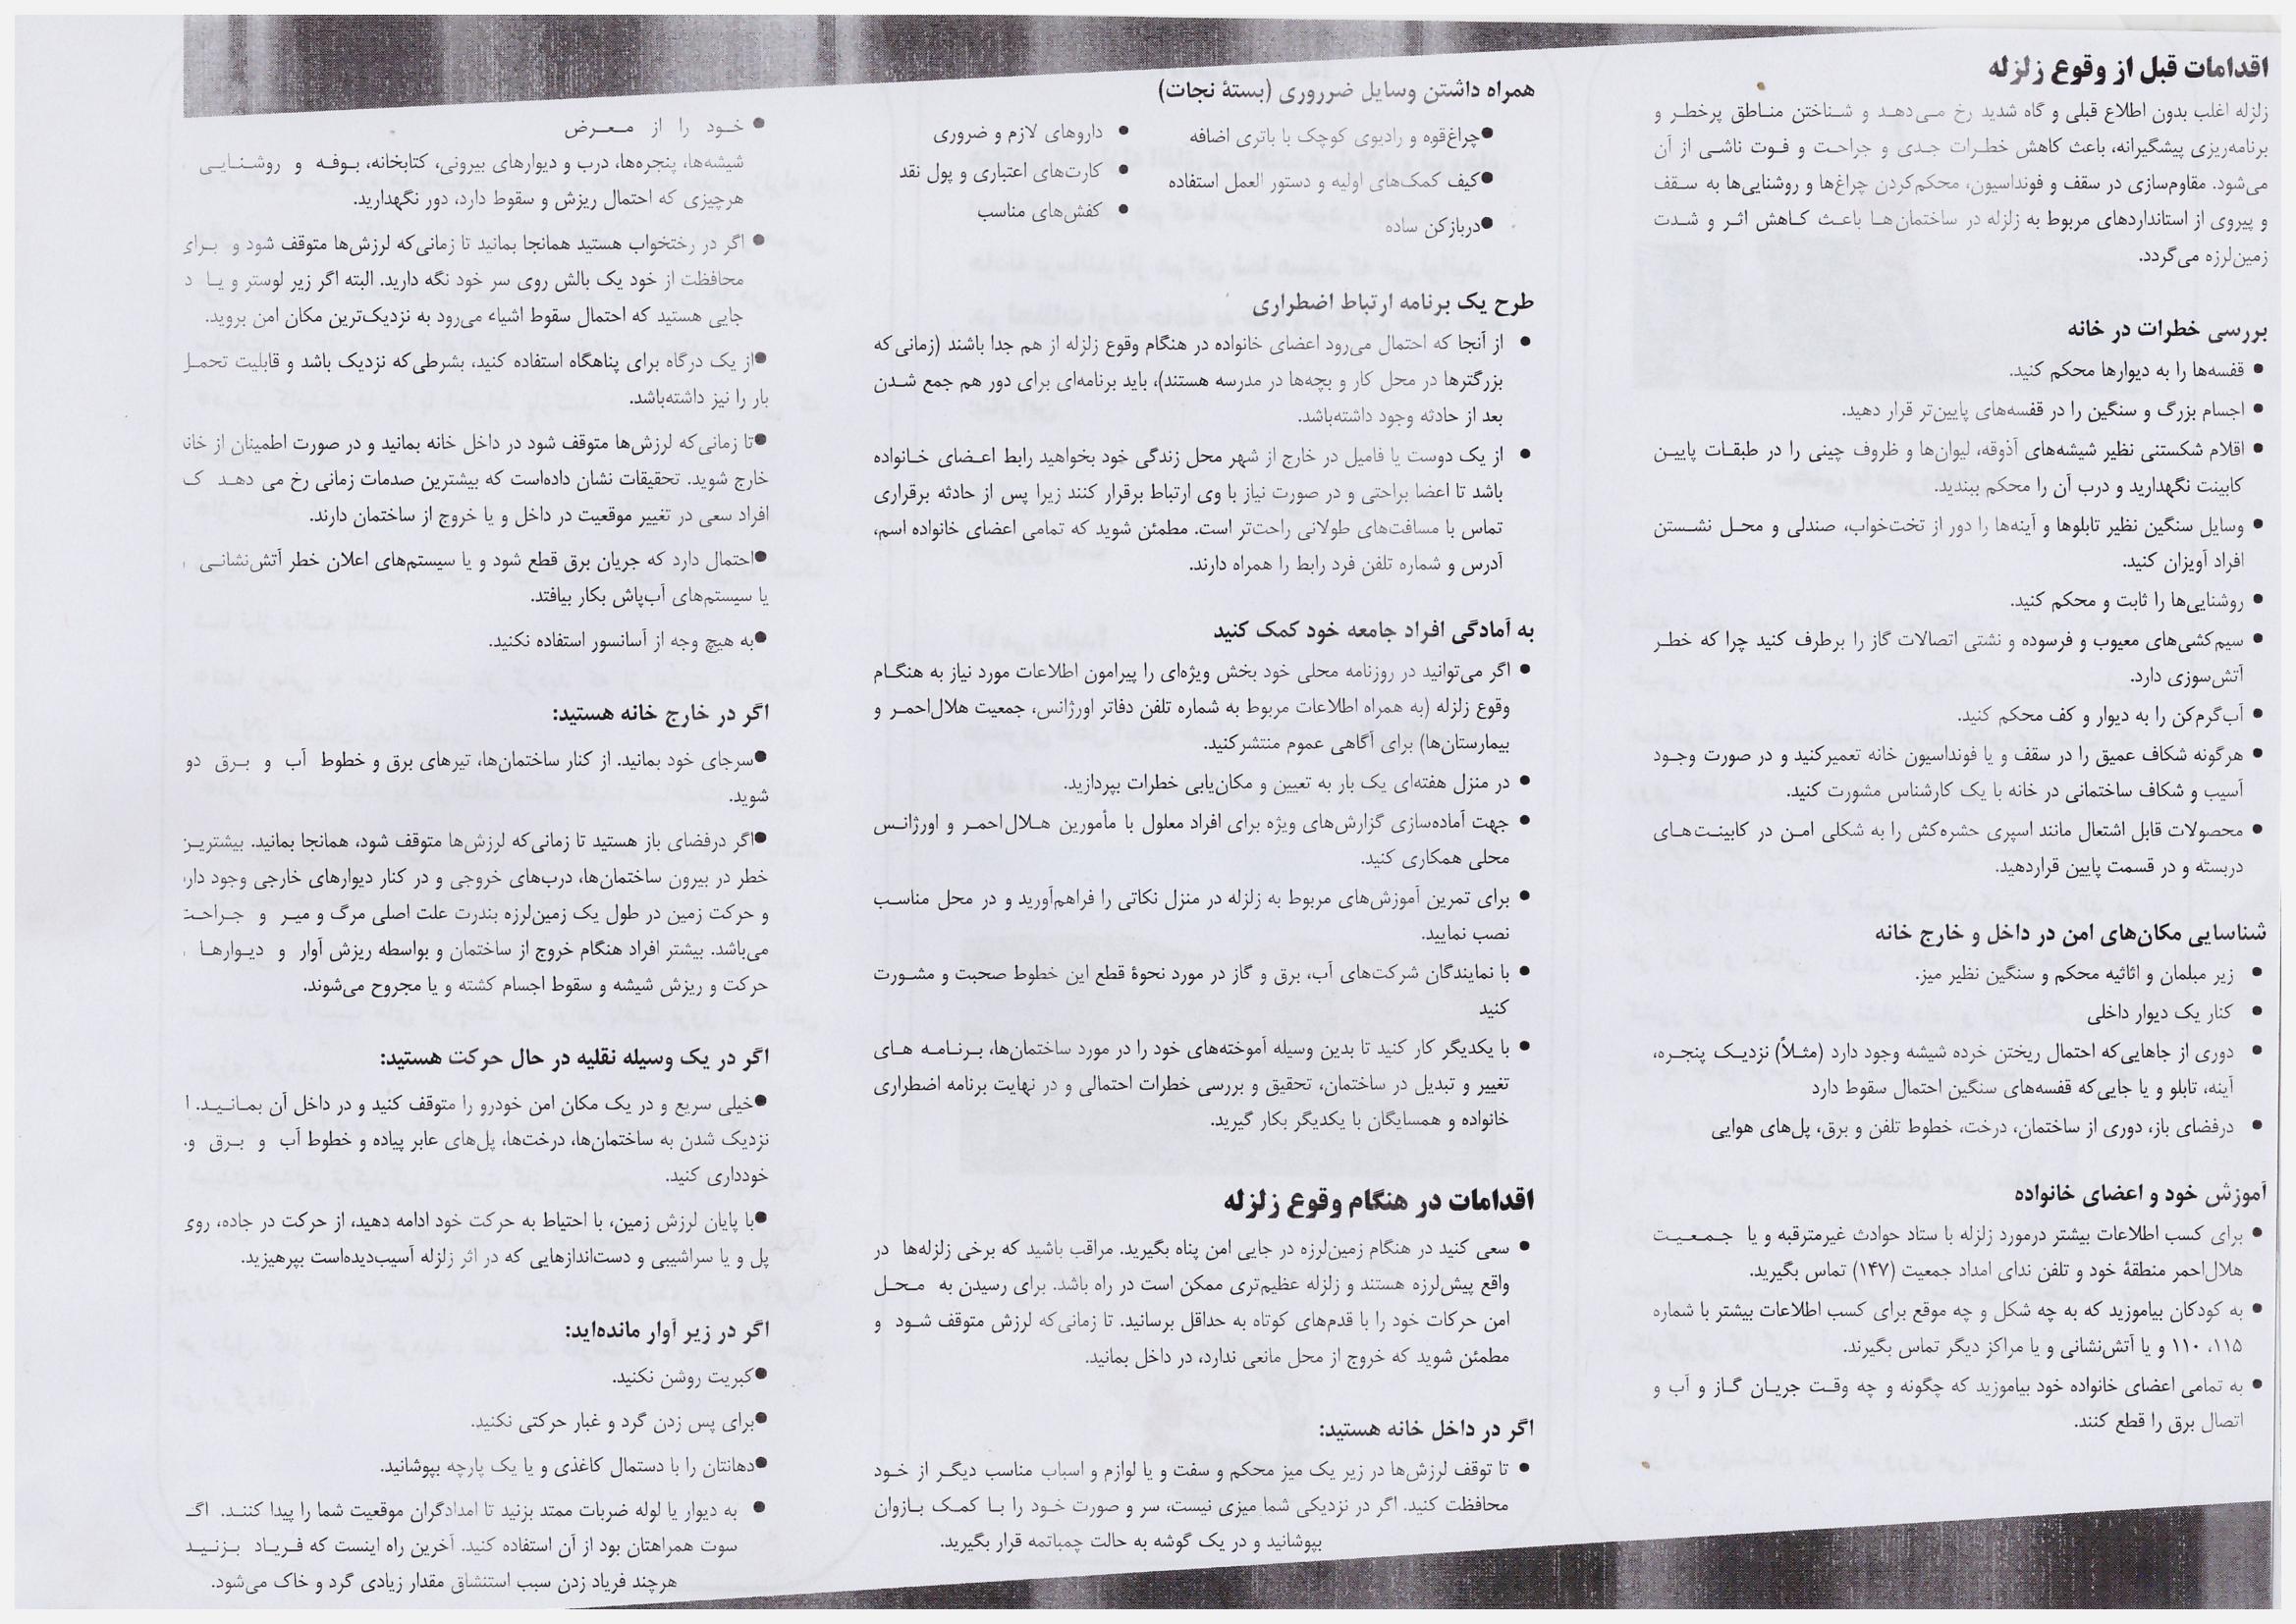 اقدامات قبل از وقوع زلزله
زلزله اغلب بدون اطلاع قبلی و گاه شدید رخ می‌دهد و شناختن مناطق پرخطر و
برنامه‌ریزی پیشگیرانه، باعث کاهش خطرات جدی و جراحت و فوت ناشی از آن
می‌شود. مقاوم‌سازی در سقف و فونداسیون، محکم‌کردن چراغ‌ها و روشنایی‌ها به سقف
و پیروی از استانداردهای مربوط به زلزله در ساختمان‌ها باعث کاهش اثر و شدت
زمین‌لرزه می‌گردد.
بررسی خطرات در خانه
● قفسه‌ها را به دیوارها محکم کنید.
● اجسام بزرگ و سنگین را در قفسه‌های پایین‌تر قرار دهید.
● اقلام شکستنی نظیر شیشه‌های آذوقه، لیوان‌ها و ظروف چینی را در طبقات پایین
کابینت نگهدارید و درب آن را محکم ببندید.
● وسایل سنگین نظیر تابلوها و آینه‌ها را دور از تخت‌خواب، صندلی و محل نشستن
افراد آویزان کنید.
● روشنایی‌ها را ثابت و محکم کنید.
● سیم‌کشی‌های معیوب و فرسوده و نشتی اتصالات گاز را برطرف کنید چرا که خطر
آتش‌سوزی دارد.
● آب‌گرم‌کن را به دیوار و کف محکم کنید.
● هرگونه شکاف عمیق را در سقف و یا فونداسیون خانه تعمیرکنید و در صورت وجود
آسیب و شکاف ساختمانی در خانه با یک کارشناس مشورت کنید.
● محصولات قابل اشتعال مانند اسپری حشره‌کش را به شکلی امن در کابینت‌های
دربسته و در قسمت پایین قراردهید.
شناسایی مکان‌های امن در داخل و خارج خانه
● زیر مبلمان و اثاثیه محکم و سنگین نظیر میز.
● کنار یک دیوار داخلی
● دوری از جاهایی‌که احتمال ریختن خرده شیشه وجود دارد (مثلاً) نزدیک پنجره،
آینه، تابلو و یا جایی‌که قفسه‌های سنگین احتمال سقوط دارد
● درفضای باز، دوری از ساختمان، درخت، خطوط تلفن و برق، پل‌های هوایی
آموزش خود و اعضای خانواده
● برای کسب اطلاعات بیشتر درمورد زلزله با ستاد حوادث غیرمترقبه و یا جمعیت
هلال‌احمر منطقهٔ خود و تلفن ندای امداد جمعیت (۱۴۷) تماس بگیرید.
● به کودکان بیاموزید که به چه شکل و چه موقع برای کسب اطلاعات بیشتر با شماره
۱۱۵، ۱۱۰ و یا آتش‌نشانی و یا مراکز دیگر تماس بگیرند.
● به تمامی اعضای خانواده خود بیاموزید که چگونه و چه وقت جریان گاز و آب و
اتصال برق را قطع کنند.
همراه داشتن وسایل ضرروری (بستهٔ نجات)
●چراغ‌قوه و رادیوی کوچک با باتری اضافه
●کیف کمک‌های اولیه و دستور العمل استفاده
●دربازکن ساده
● داروهای لازم و ضروری
● کارت‌های اعتباری و پول نقد
● کفش‌های مناسب
طرح یک برنامه ارتباط اضطراری
● از آنجا که احتمال می‌رود اعضای خانواده در هنگام وقوع زلزله از هم جدا باشند (زمانی‌که
بزرگترها در محل کار و بچه‌ها در مدرسه هستند)، باید برنامه‌ای برای دور هم جمع شدن
بعد از حادثه وجود داشته‌باشد.
● از یک دوست یا فامیل در خارج از شهر محل زندگی خود بخواهید رابط اعضای خانواده
باشد تا اعضا براحتی و در صورت نیاز با وی ارتباط برقرار کنند زیرا پس از حادثه برقراری
تماس با مسافت‌های طولانی راحت‌تر است. مطمئن شوید که تمامی اعضای خانواده اسم،
آدرس و شماره تلفن فرد رابط را همراه دارند.
به آمادگی افراد جامعه خود کمک کنید
● اگر می‌توانید در روزنامه محلی خود بخش ویژه‌ای را پیرامون اطلاعات مورد نیاز به هنگام
وقوع زلزله (به همراه اطلاعات مربوط به شماره تلفن دفاتر اورژانس، جمعیت هلال‌احمر و
بیمارستان‌ها) برای آگاهی عموم منتشرکنید.
● در منزل هفته‌ای یک بار به تعیین و مکان‌یابی خطرات بپردازید.
● جهت آماده‌سازی گزارش‌های ویژه برای افراد معلول با مأمورین هلال‌احمر و اورژانس
محلی همکاری کنید.
● برای تمرین آموزش‌های مربوط به زلزله در منزل نکاتی را فراهم‌آورید و در محل مناسب
نصب نمایید.
● با نمایندگان شرکت‌های آب، برق و گاز در مورد نحوهٔ قطع این خطوط صحبت و مشورت
کنید
● با یکدیگر کار کنید تا بدین وسیله آموخته‌های خود را در مورد ساختمان‌ها، برنامه های
تغییر و تبدیل در ساختمان، تحقیق و بررسی خطرات احتمالی و در نهایت برنامه اضطراری
خانواده و همسایگان با یکدیگر بکار گیرید.
اقدامات در هنگام وقوع زلزله
● سعی کنید در هنگام زمین‌لرزه در جایی امن پناه بگیرید. مراقب باشید که برخی زلزله‌ها در
واقع پیش‌لرزه هستند و زلزله عظیم‌تری ممکن است در راه باشد. برای رسیدن به محل
امن حرکات خود را با قدم‌های کوتاه به حداقل برسانید. تا زمانی‌که لرزش متوقف شود و
مطمئن شوید که خروج از محل مانعی ندارد، در داخل بمانید.
اگر در داخل خانه هستید:
● تا توقف لرزش‌ها در زیر یک میز محکم و سفت و یا لوازم و اسباب مناسب دیگر از خود
محافظت کنید. اگر در نزدیکی شما میزی نیست، سر و صورت خود را با کمک بازوان
بپوشانید و در یک گوشه به حالت چمباتمه قرار بگیرید.
● خود را از معرض
شیشه‌ها، پنجره‌ها، درب و دیوارهای بیرونی، کتابخانه، بوفه و روشنایی
هرچیزی که احتمال ریزش و سقوط دارد، دور نگهدارید.
● اگر در رختخواب هستید همانجا بمانید تا زمانی‌که لرزش‌ها متوقف شود و برای
محافظت از خود یک بالش روی سر خود نگه دارید. البته اگر زیر لوستر و یا د
جایی هستید که احتمال سقوط اشیاء می‌رود به نزدیک‌ترین مکان امن بروید.
●از یک درگاه برای پناهگاه استفاده کنید، بشرطی‌که نزدیک باشد و قابلیت تحمل
بار را نیز داشته‌باشد.
●تا زمانی‌که لرزش‌ها متوقف شود در داخل خانه بمانید و در صورت اطمینان از خانه
خارج شوید. تحقیقات نشان داده‌است که بیشترین صدمات زمانی رخ می دهد ک
افراد سعی در تغییر موقعیت در داخل و یا خروج از ساختمان دارند.
●احتمال دارد که جریان برق قطع شود و یا سیستم‌های اعلان خطر آتش‌نشانی
یا سیستم‌های آب‌پاش بکار بیافتد.
●به هیچ وجه از آسانسور استفاده نکنید.
اگر در خارج خانه هستید:
●سرجای خود بمانید. از کنار ساختمان‌ها، تیرهای برق و خطوط آب و برق دو
شوید.
●اگر درفضای باز هستید تا زمانی‌که لرزش‌ها متوقف شود، همانجا بمانید. بیشترین
خطر در بیرون ساختمان‌ها، درب‌های خروجی و در کنار دیوارهای خارجی وجود دارد
و حرکت زمین در طول یک زمین‌لرزه بندرت علت اصلی مرگ و میر و جراحت
می‌باشد. بیشتر افراد هنگام خروج از ساختمان و بواسطه ریزش آوار و دیوارها
حرکت و ریزش شیشه و سقوط اجسام کشته و یا مجروح می‌شوند.
اگر در یک وسیله نقلیه در حال حرکت هستید:
●خیلی سریع و در یک مکان امن خودرو را متوقف کنید و در داخل آن بمانید. ا
نزدیک شدن به ساختمان‌ها، درخت‌ها، پل‌های عابر پیاده و خطوط آب و برق و
خودداری کنید.
●با پایان لرزش زمین، با احتیاط به حرکت خود ادامه دهید، از حرکت در جاده، روی
پل و یا سراشیبی و دست‌اندازهایی که در اثر زلزله آسیب‌دیده‌است بپرهیزید.
اگر در زیر آوار مانده‌اید:
●کبریت روشن نکنید.
●برای پس زدن گرد و غبار حرکتی نکنید.
●دهانتان را با دستمال کاغذی و یا یک پارچه بپوشانید.
● به دیوار یا لوله ضربات ممتد بزنید تا امدادگران موقعیت شما را پیدا کنند. اگ
سوت همراهتان بود از آن استفاده کنید. آخرین راه اینست که فریاد بزنید
هرچند فریاد زدن سبب استنشاق مقدار زیادی گرد و خاک می‌شود.